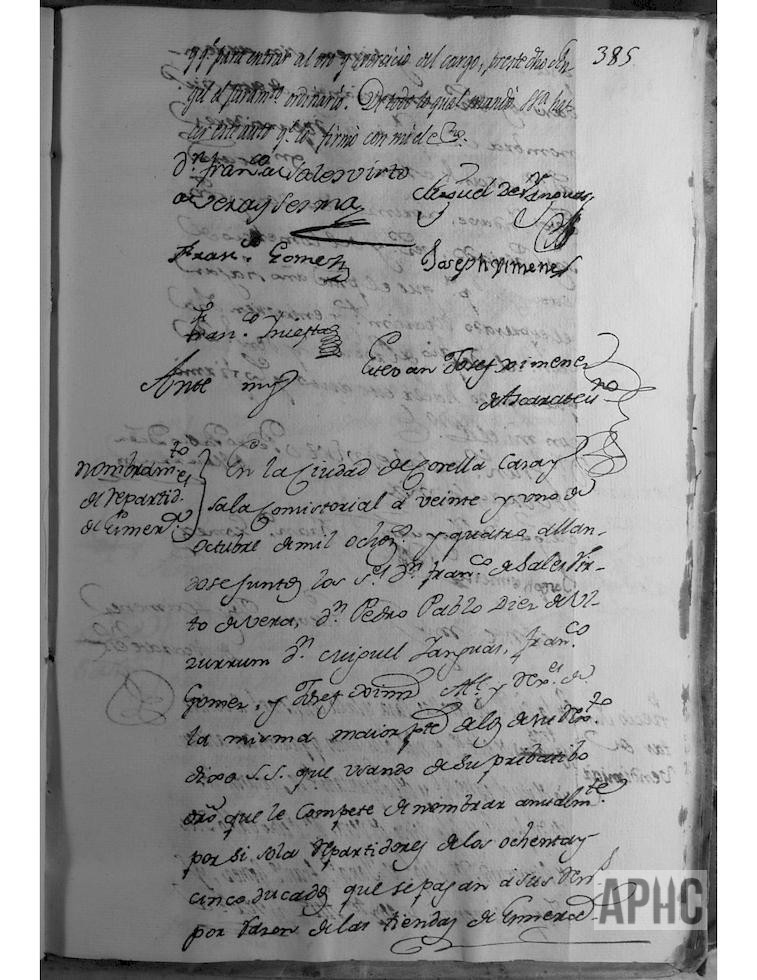 385
y q.e para entrar al uso y exercicio del cargo, preste dho
el juram.to ordinario. De todo lo qual mandó S.ria haz-
er este auto q.e lo firmó con mi el Ess.no
d.n fran.co de Sales virto
de vera y
Miguel de Zanguas
Fran.co Gomez
Joseph ximenez
Fran.co Huesta
Estevan Josef ximenez
de Ascarate
Ante my
nombram.to
de repartid.es
de
En la Ciudad de Corella Casa y
Sala Consistorial a veinte y uno de
Octubre de mil ochoz.s y quatro allan-
dose juntos los S.es d.n fran.co de Sales Vir-
to de vera, d.n Pedro Pablo Diez de Ul-
zurrum d.n Miguel Zanguas, fran.co
Gomez, y Josef xim.z Al.e y de
la misma maior p.te de los de su
dixo S.S. que usando de su pribatibo
dro que le Compete de nombrar anualm.te
por si sola repartidores de los ochenta y
cinco ducados que se pagan a sus
por razon de las tiendas de
APHC